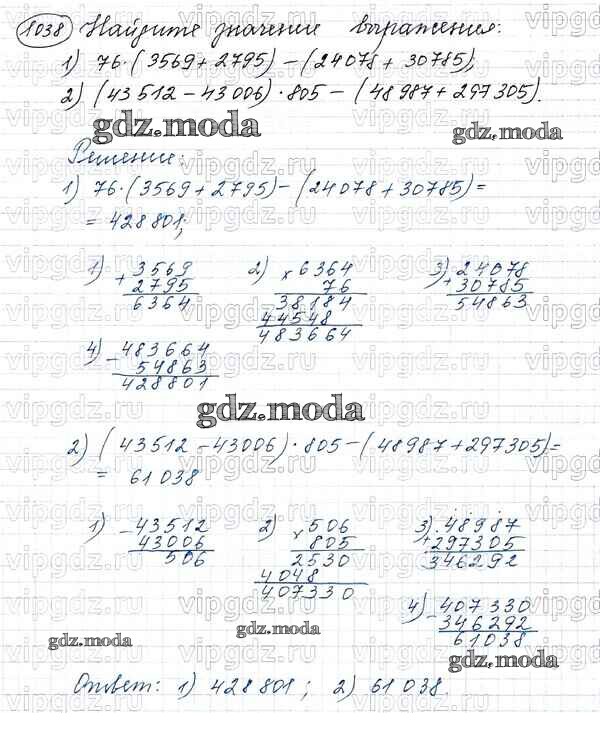 1038 Найдите значение выражения:
1) 76·(3569+2795)-(24078+30785);
2) (43512-43006)·805-(48987+297305).
gdz.moda gdz.moda
Решение:
1) 76·(3569+2795)-(24078+30785)=
= 428801;
1) + 3569 2) × 6364 3) + 24078
2795 76 30785
6364 38184 54863
44548
483664
4) - 483664
54863
428801
gdz.moda
2) (43512-43006)·805-(48987+297305)=
= 61038
1) - 43512 2) × 506 3) + 48987
43006 805 297305
506 2530 346292
4048
407330
4) - 407330
346292
61038
gdz.moda gdz.moda gdz.moda
Ответ: 1) 428801; 2) 61038.
vipgdz.ru